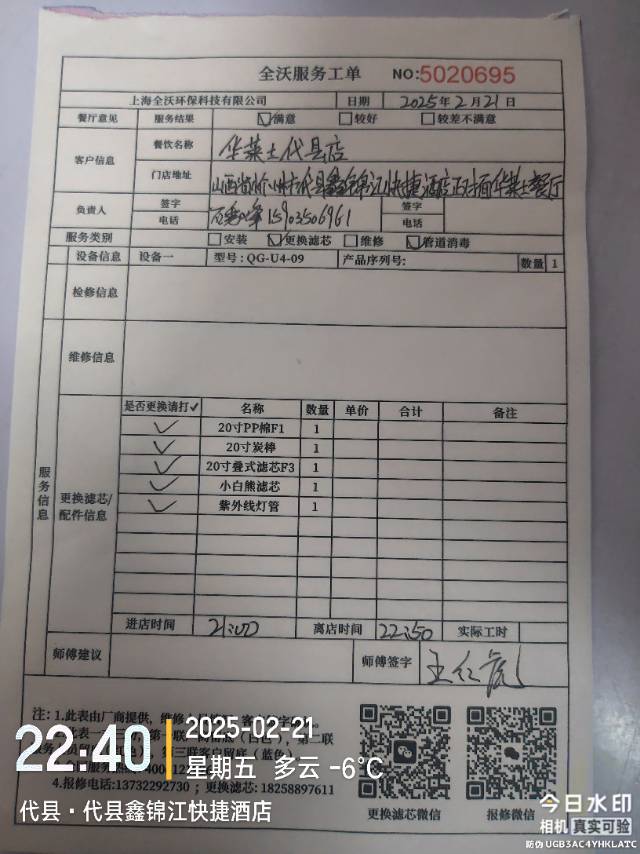 全沃服务工单 NO:5020695
上海全沃环保科技有限公司 日期 2025年2月21日
餐厅意见 服务结果 满意 较好 较差不满意
客户信息 餐饮名称 华莱士代县店
门店地址 山西省忻州市代县鑫锦江快捷酒店正对面华莱士餐厅
负责人 签字 签字
电话 15903506961 电话
服务类别 安装 更换滤芯 维修 管道消毒
设备信息 设备一 型号:QG-U4-09 产品序列号: 数量 1
检修信息
维修信息
服务信息
更换滤芯/配件信息
是否更换请打✓ 名称 数量 单价 合计 备注
✓ 20寸PP棉F1 1
✓ 20寸炭棒 1
✓ 20寸叠式滤芯F3 1
✓ 小白熊滤芯 1
✓ 紫外线灯管 1
进店时间 21:00 离店时间 22:50 实际工时
师傅建议 师傅签字
注:1.此表由厂商提供,
第三联客户留底(蓝色)
4.报修电话:13732292730;更换滤芯:18258897611
更换滤芯微信 报修微信
22:40
2025-02-21
星期五 多云 -6℃
代县·代县鑫锦江快捷酒店
今日水印
相机 真实可验
防伪 UGB3AC4YHKLATC